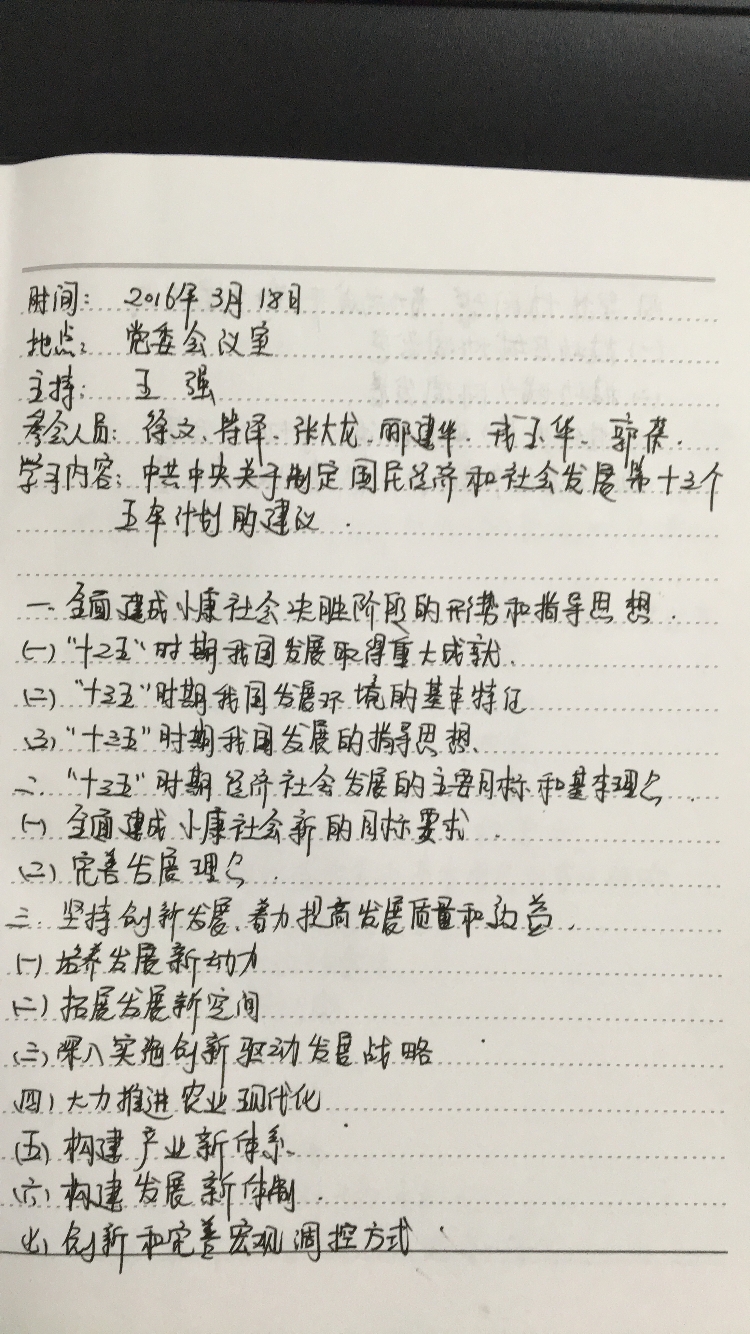 时间： 2016年3月18日
地点： 党委会议室
主持： 王 强
参会人员：徐文、 张大龙、郦建华、 玉华、郭
学习内容：中共中央关于制定国民经济和社会发展第十三个
五年计划的建议.
一.全面建成小康社会决胜阶段的形势和指导思想.
(一)“十二五”时期我国发展取得重大成就.
(二)“十三五”时期我国发展环境的基本特征
(三)“十三五”时期我国发展的指导思想.
二.“十三五”时期经济社会发展的主要目标和基本理念.
(一)全面建成小康社会新的目标要求.
(二)完善发展理念.
三.坚持创新发展、着力提高发展质量和效益.
(一)培养发展新动力
(二)拓展发展新空间
(三)深入实施创新驱动发展战略
(四)大力推进农业现代化
(五)构建产业新体系.
(六)构建发展新体制.
(七)创新和完善宏观调控方式.